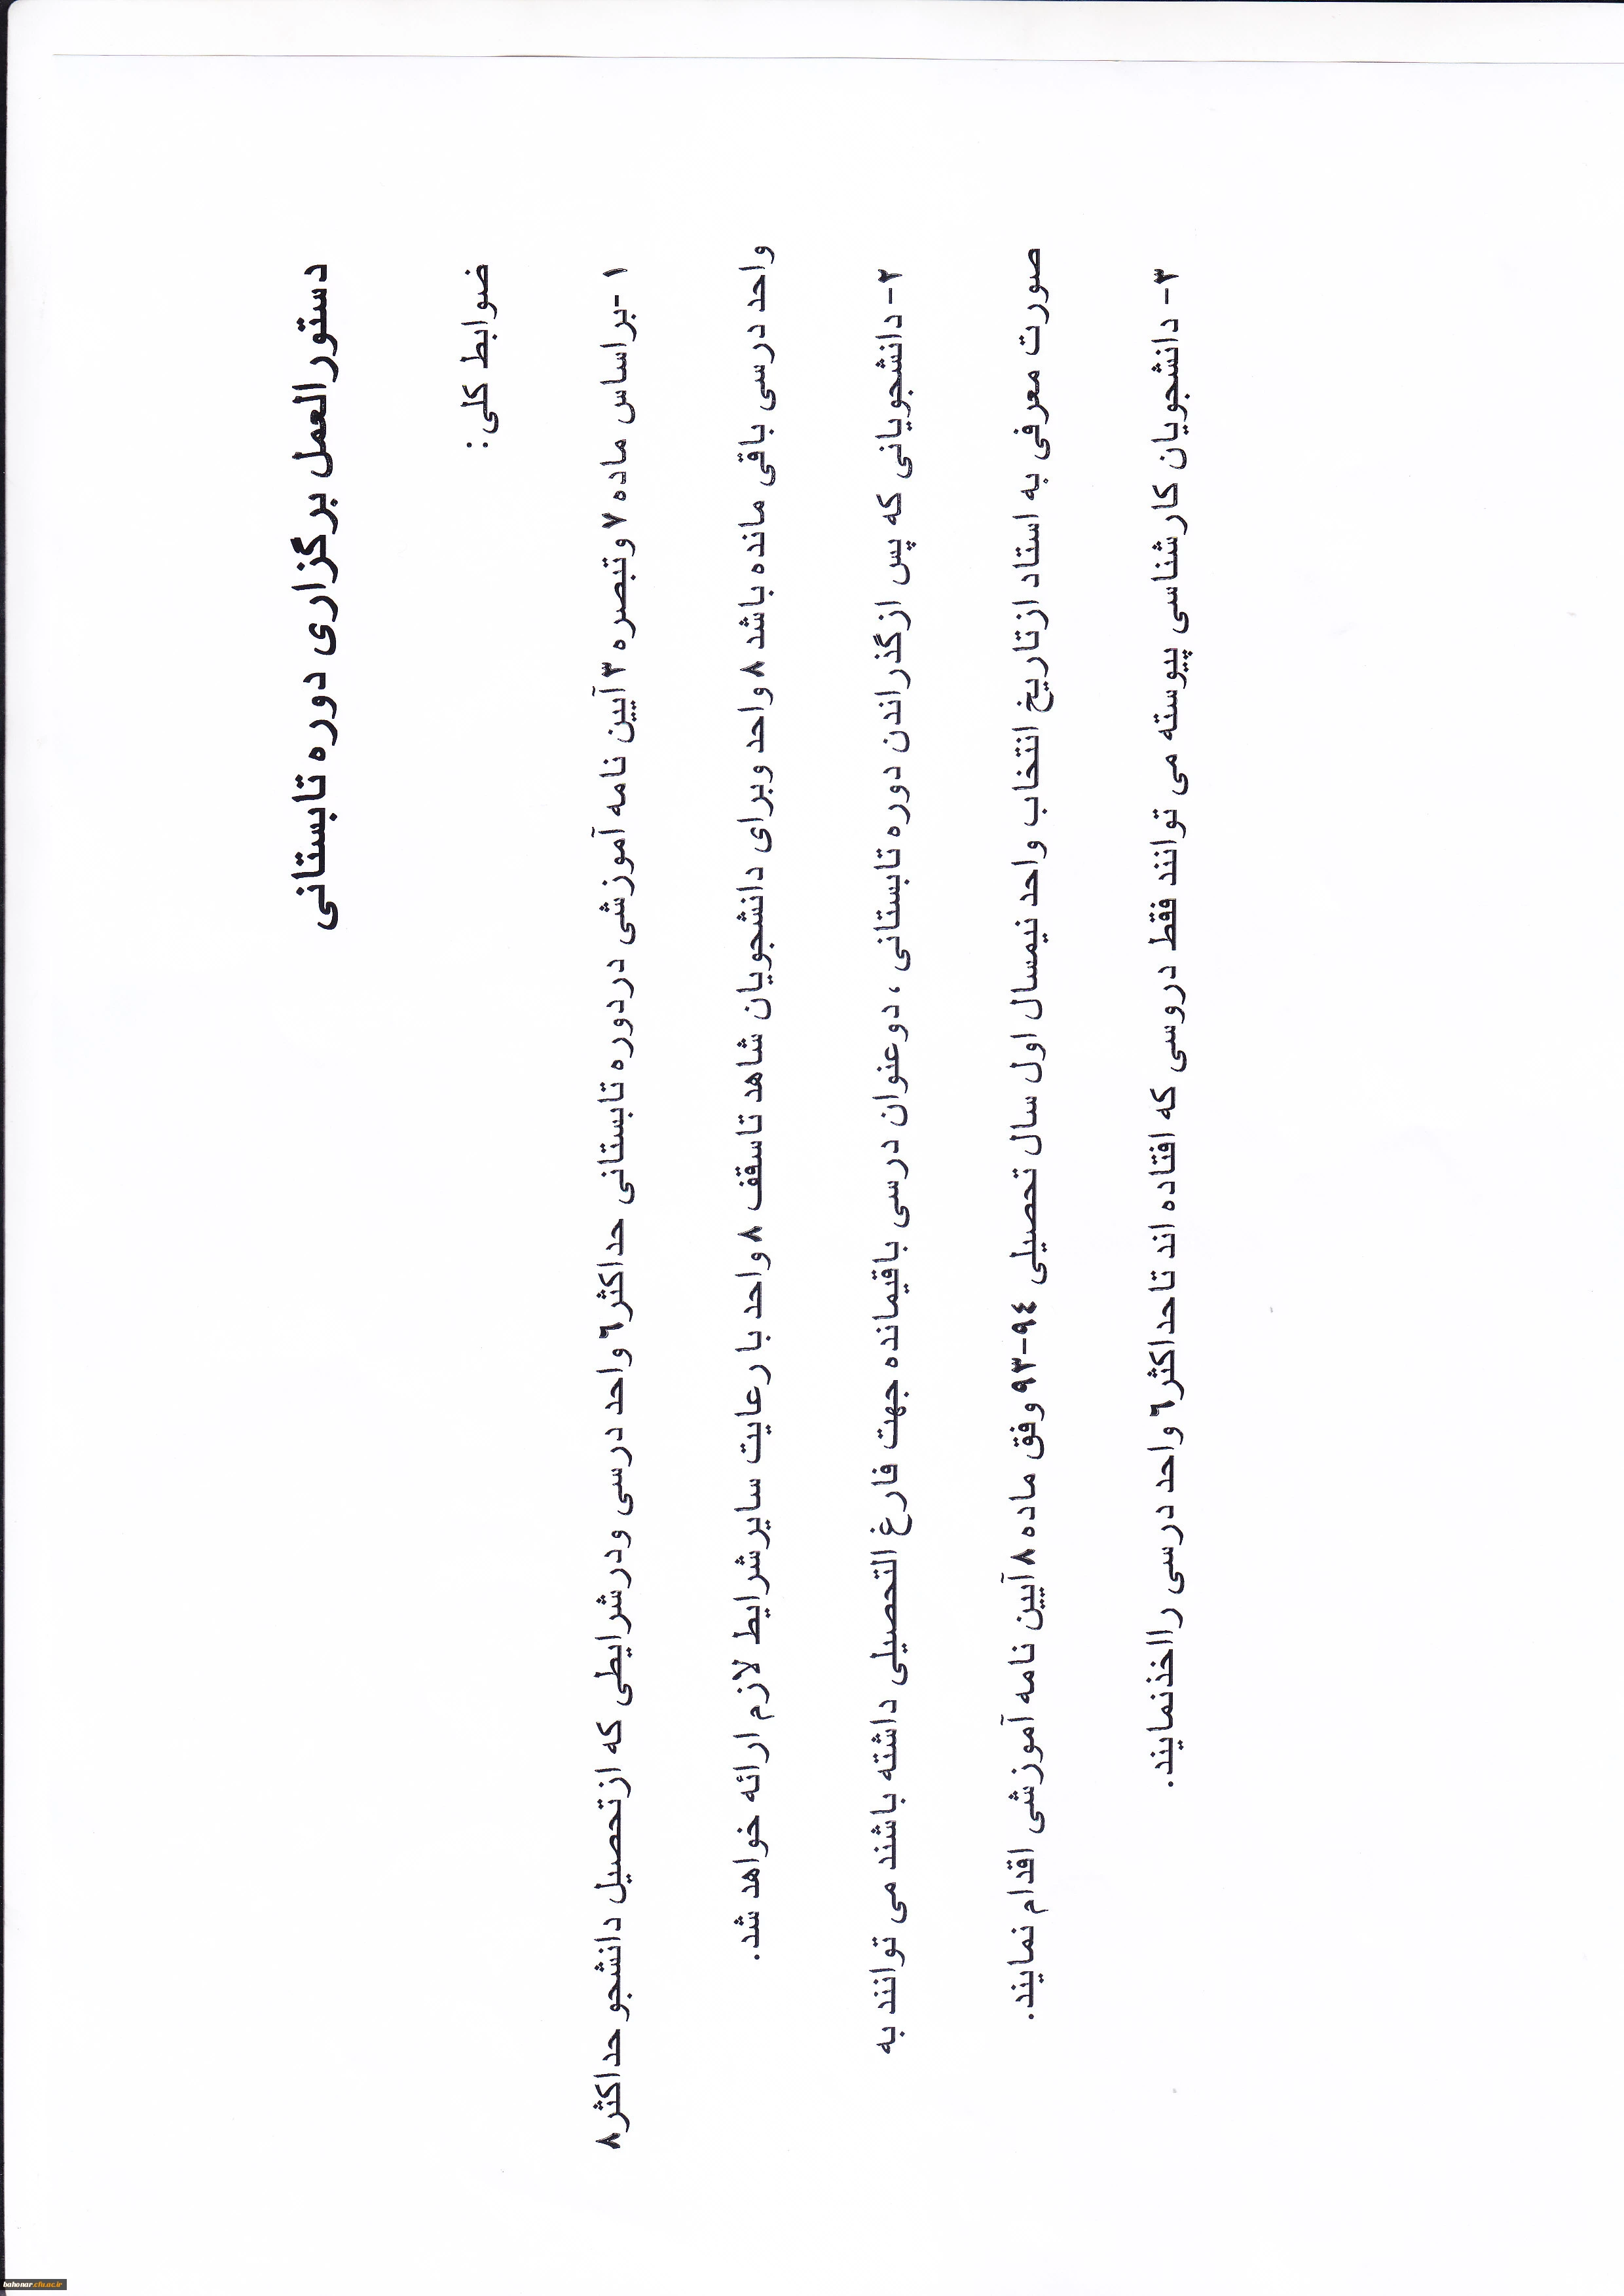 دستورالعمل برگزاری دوره تابستانی
ضوابط کلی:
۱ -براساس ماده ۷ وتبصره ۳ آیین نامه آموزشی دردوره تابستانی حداکثر۶ واحد درسی ودرشرایطی که ازتحصیل دانشجو حداکثر۸
واحد درسی باقی مانده باشد ۸ واحد وبرای دانشجویان شاهد تاسقف ۸ واحد با رعایت سایرشرایط لازم ارائه خواهد شد.
۲- دانشجویانی که پس ازگذراندن دوره تابستانی ، دوعنوان درسی باقیمانده جهت فارغ التحصیلی داشته باشند می توانند به
صورت معرفی به استاد ازتاریخ انتخاب واحد نیمسال اول سال تحصیلی ۹۴-۹۳ وفق ماده ۸ آیین نامه آموزشی اقدام نمایند.
۳- دانشجویان کارشناسی پیوسته می توانند فقط دروسی که افتاده اند تاحداکثر۶ واحد درسی رااخذنمایند.
bahonar.cfu.ac.ir